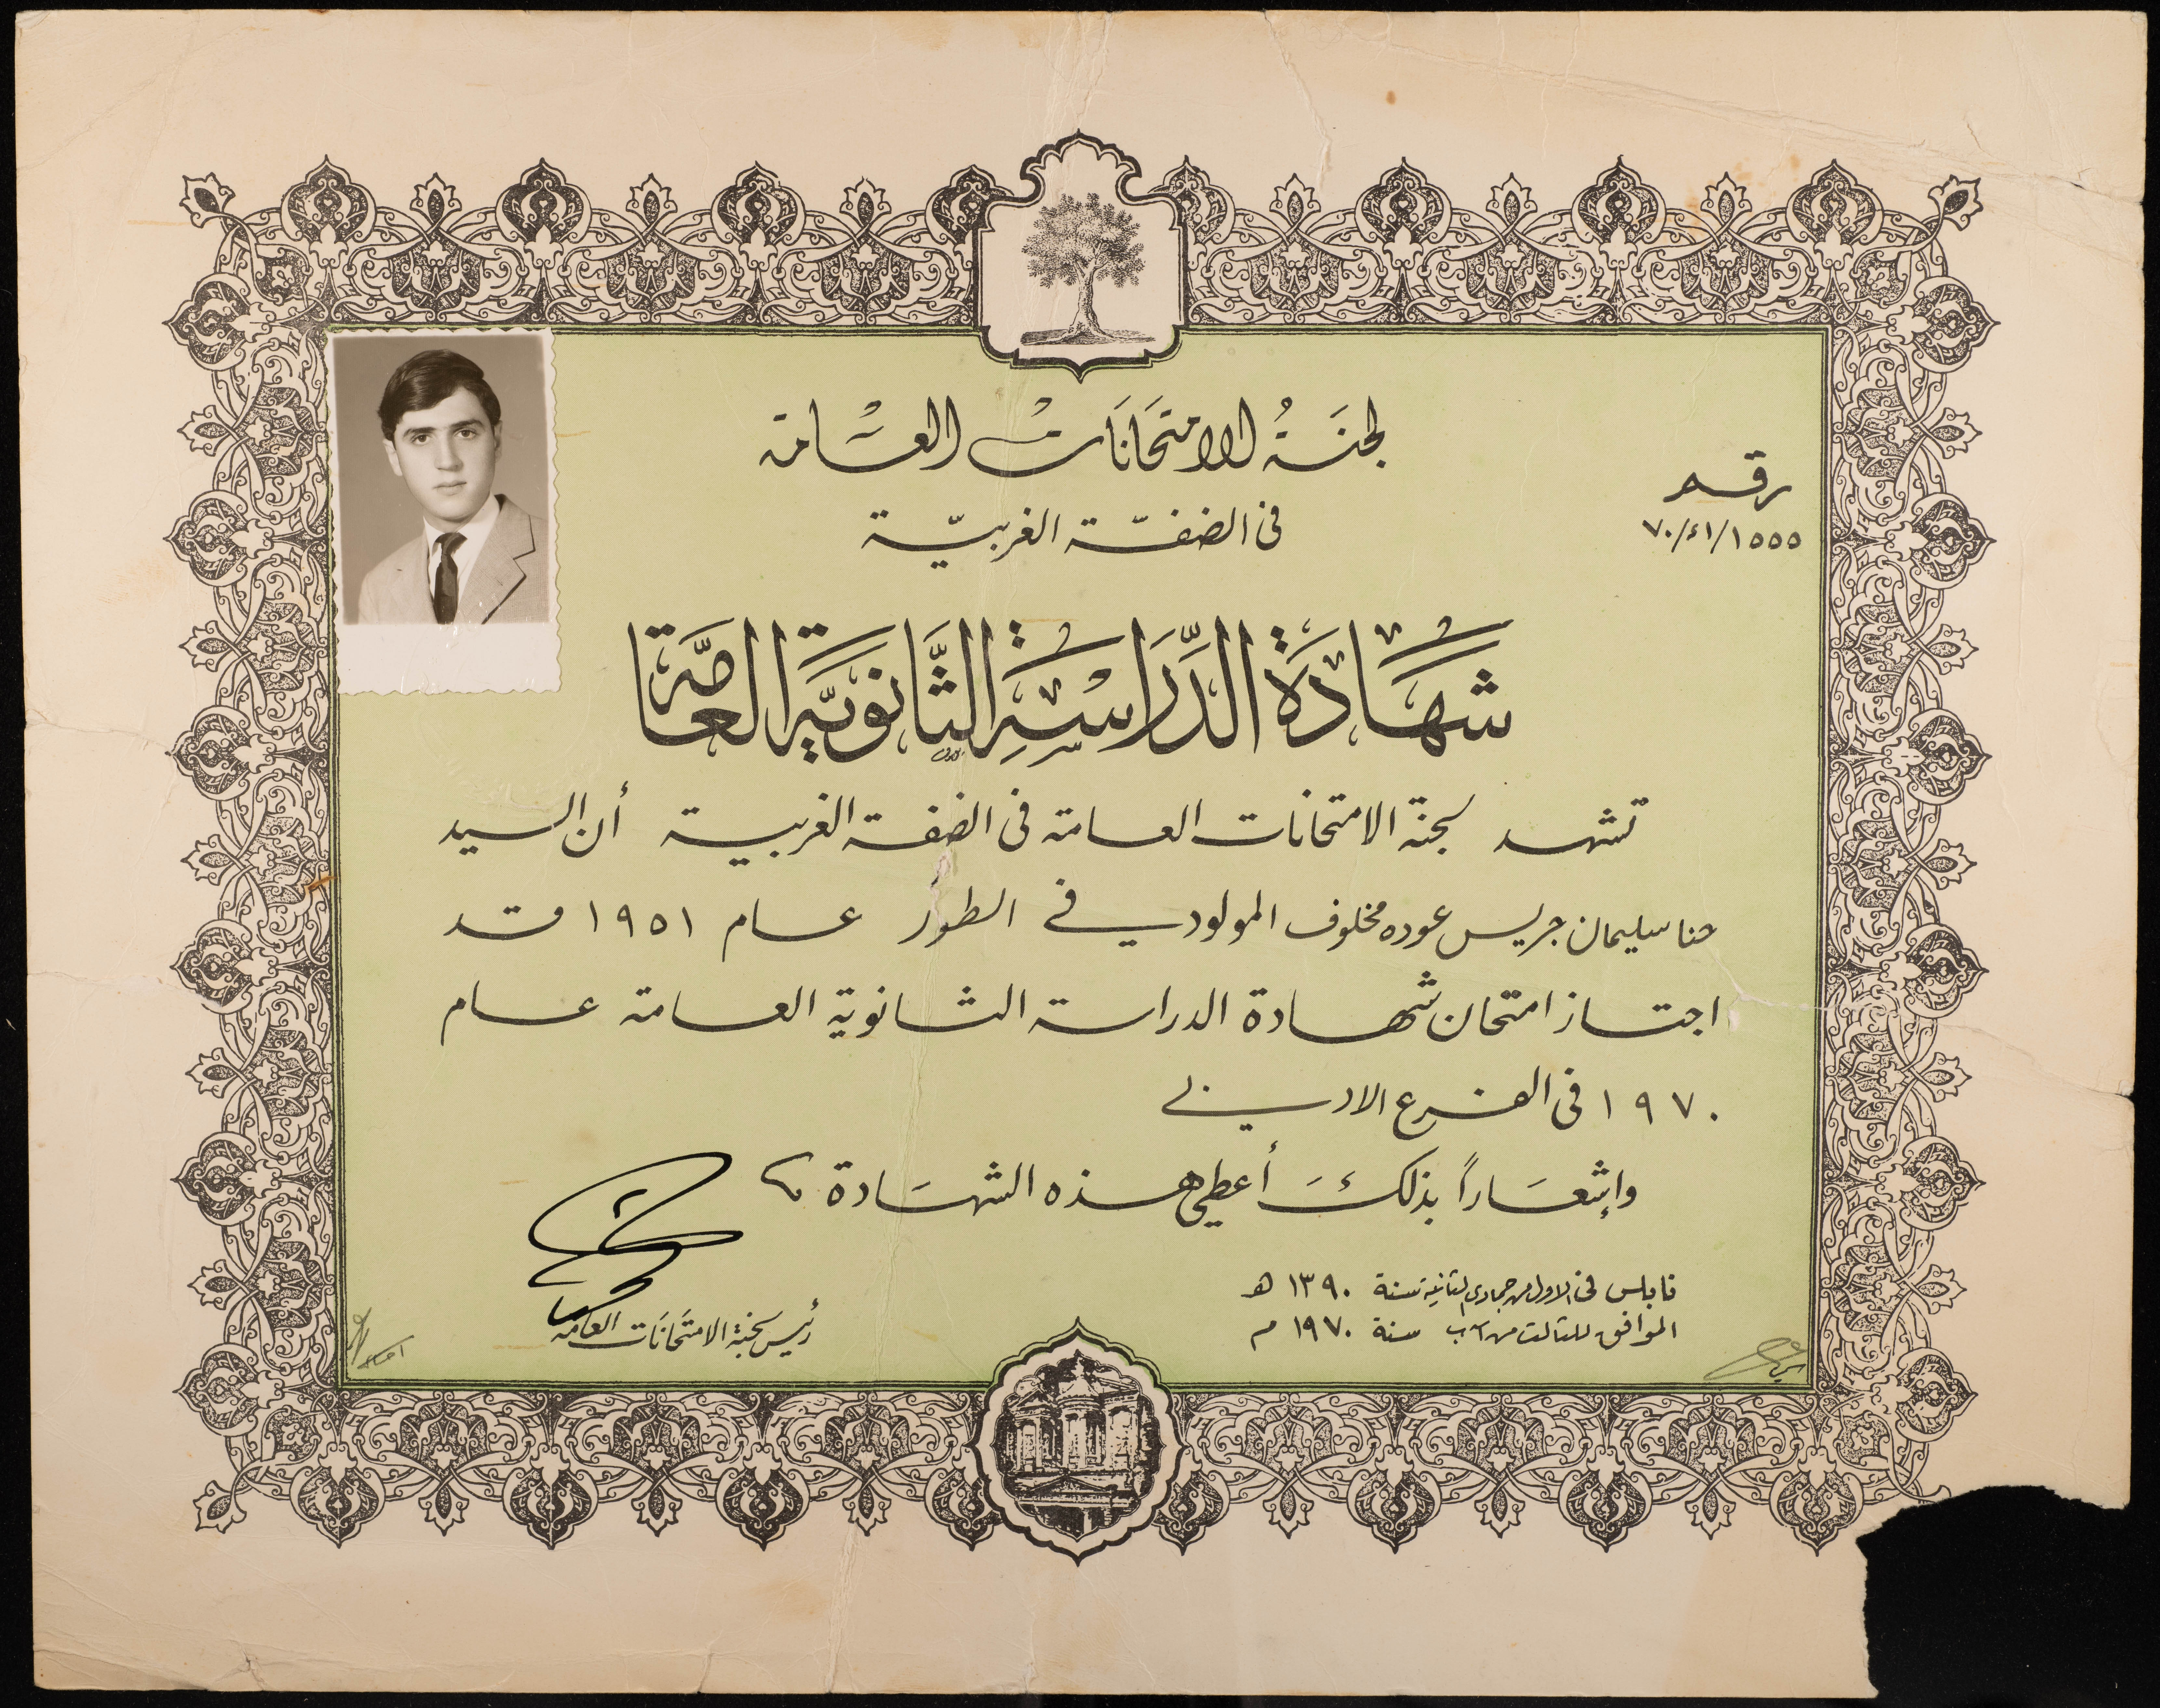 لجنَةُ الامتحَانَاتْ العَامة
في الضفّة الغربيّة
رقم
١٥٥٥/٤١/٧٠
شَهَادَةُ الدِّرَاسَةِ الثَّانَوِيَّةِ العَامَّة
تشهد لجنة الامتحانات العامة في الضفة الغربية أن السيد
حنا سليمان جريس عوده مخلوف المولود في الطور عام ١٩٥١ قد
اجتاز امتحان شهادة الدراسة الثانوية العامة عام
١٩٧٠ في الفرع الادبي
وإشعَاراً بذلكَ أعطي هذه الشهَادة
نابلس في الاول من جمادى الثانية سنة ١٣٩٠ هـ
الموافق للثالث من آب سنة ١٩٧٠ م
رئيس لجنة الامتحَانَات العامة